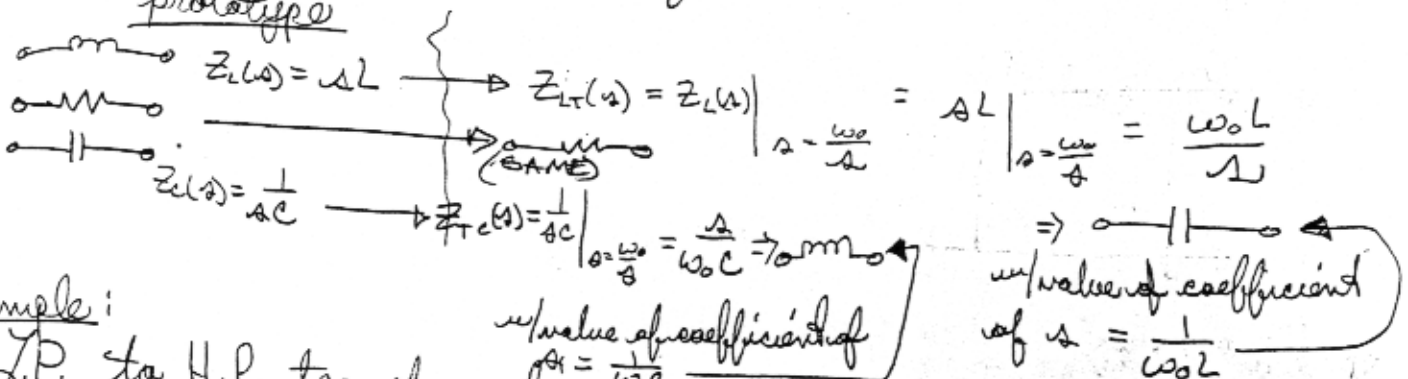 prototype
Z_L(s) = sL → Z_LT(s) = Z_L(s)|_{s = ω₀/s} = sL|_{s = ω₀/s} = ω₀L/s
(SAME)
Z_C(s) = 1/sC → Z_TC(s) = 1/sC|_{s = ω₀/s} = s/ω₀C ⇒
⇒
w/value of coefficient of
s = 1/ω₀C
w/value of coefficient
of s = 1/ω₀L
mple:
L.P. to H.P.